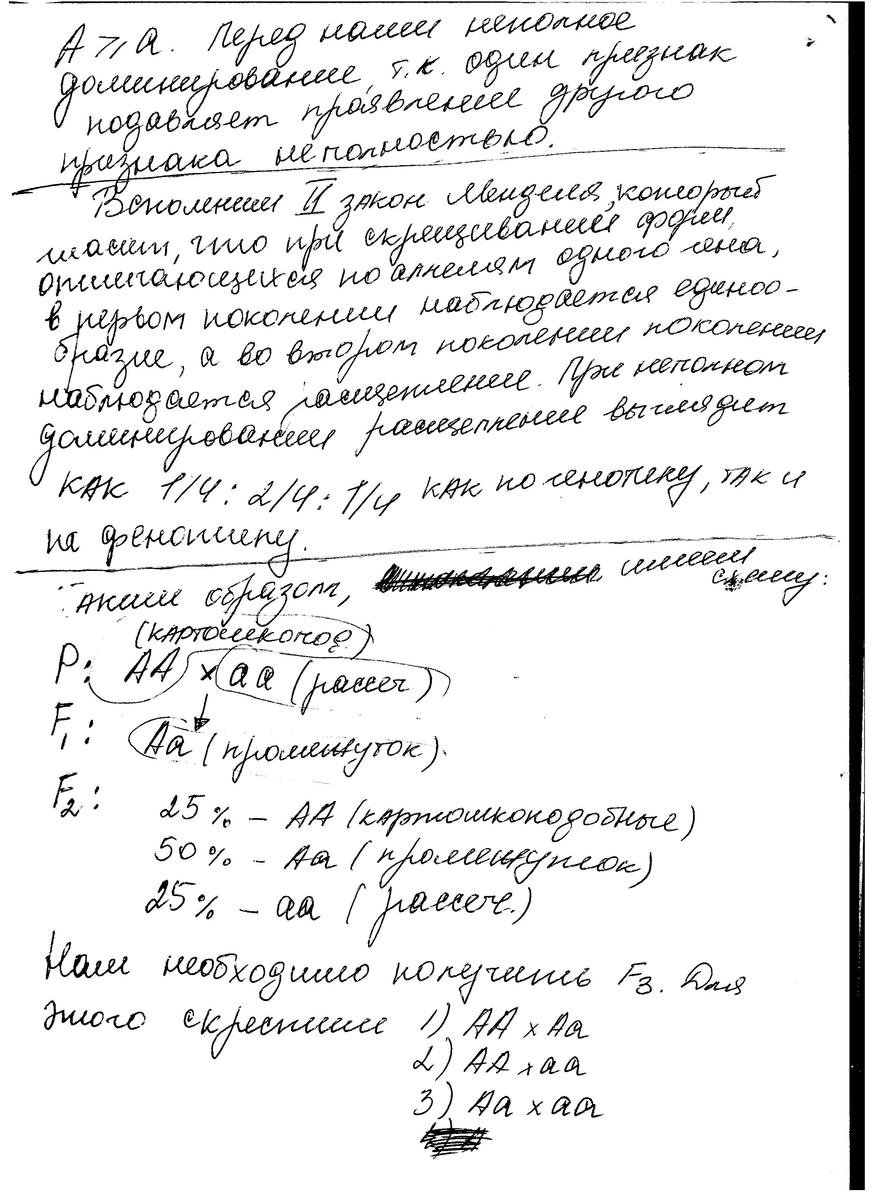 А ⩾ а. Перед нами неполное
доминирование, т.к. один признак
подавляет проявление другого
признака неполностью.
Вспомним II закон Менделя, который
гласит, что при скрещивании форм,
отличающихся по аллелям одного гена,
в первом поколении наблюдается единоо-
бразие, а во втором поколении поколении
наблюдается расщепление. При неполном
доминировании расщепление выглядит
как 1/4 : 2/4 : 1/4 как по генотипу, так и
по фенотипу.
Таким образом, имеем
схему:
(картошкопод.)
P: AA × aa (рассеч)
F1: Aa (промежуток).
F2:
25% – AA (картошкоподобные)
50% – Aa (промежуток)
25% – aa (рассеч.)
Нам необходимо получить F3. Для
этого скрестим 1) AA × Aa
2) AA × aa
3) Aa × aa